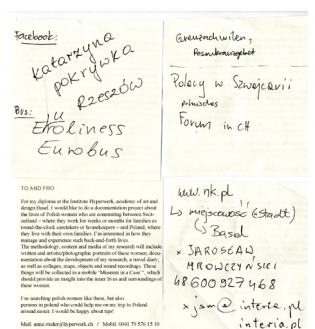 Facebook:
Katarzyna
pokrywka
Rzeszów
Bus:
Eurobus
Grenzachwilen,
Polacy w Szwajcarii
polnisches
Forum in CH
TO AND FRO
For my diploma at the Institute Hyperwerk, academy of art and
design Basel, I would like to do a documentation project about
the lives of Polish women who are commuting between Swit-
zerland – where they work for weeks or months for families as
round-the-clock caretakers or housekeepers – and Poland, where
they live with their own families. I'm interested in how they
manage and experience such back-and-forth lives.
The methodology, content and media of my research will include
written and artistic/photographic portraits of these women; docu-
mentation about the development of my research; a travel diary,
as well as collages, maps, objects and sound recordings. These
things will be collected in a mobile "Museum in a Case", which
should provide an insight into the inner lives and surroundings of
these women.
I'm searching polish women like these, but also
persons in poland who could help me on my trip to Poland
around easter. I would be happy about tips!
Mail: anna.studer@hyperwerk.ch / Mobil: 0041 79 576 15 10
www.nk.pl
↳ miejscowość (Stadt)
↳ Basel
x JAROSŁAW
MROWCZYŃSKI
48600927468
x jsm@interia.pl
interia.pl